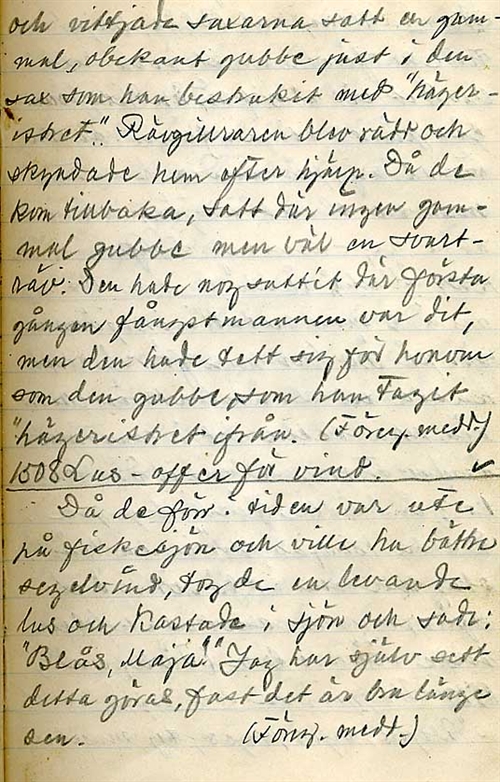 och vittjade saxarna satt en gam-
mal, obekant gubbe just i den
sax som han bestrukit med "häger-
istret". Rävgillraren blev rädd och
skyndade hem efter hjälp. Då de
kom tillbaka, satt där ingen gam-
mal gubbe men väl en svart-
räv. Den hade nog suttit där första
gången fångstmannen var dit,
men den hade tett sig för honom
som den gubbe, som han tagit
"hägeristret ifrån. (Föreg. medd.)
1508 Lus - offer för vind. ✓
Då de förr. tiden var ute
på fiskesjön och ville ha bättre
segelvind, tog de en levande
lus och kastade i sjön och sade:
"Blås, Maja!" Jag har själv sett
detta göras, fast det är bra länge
sen. (Föreg. medd.)